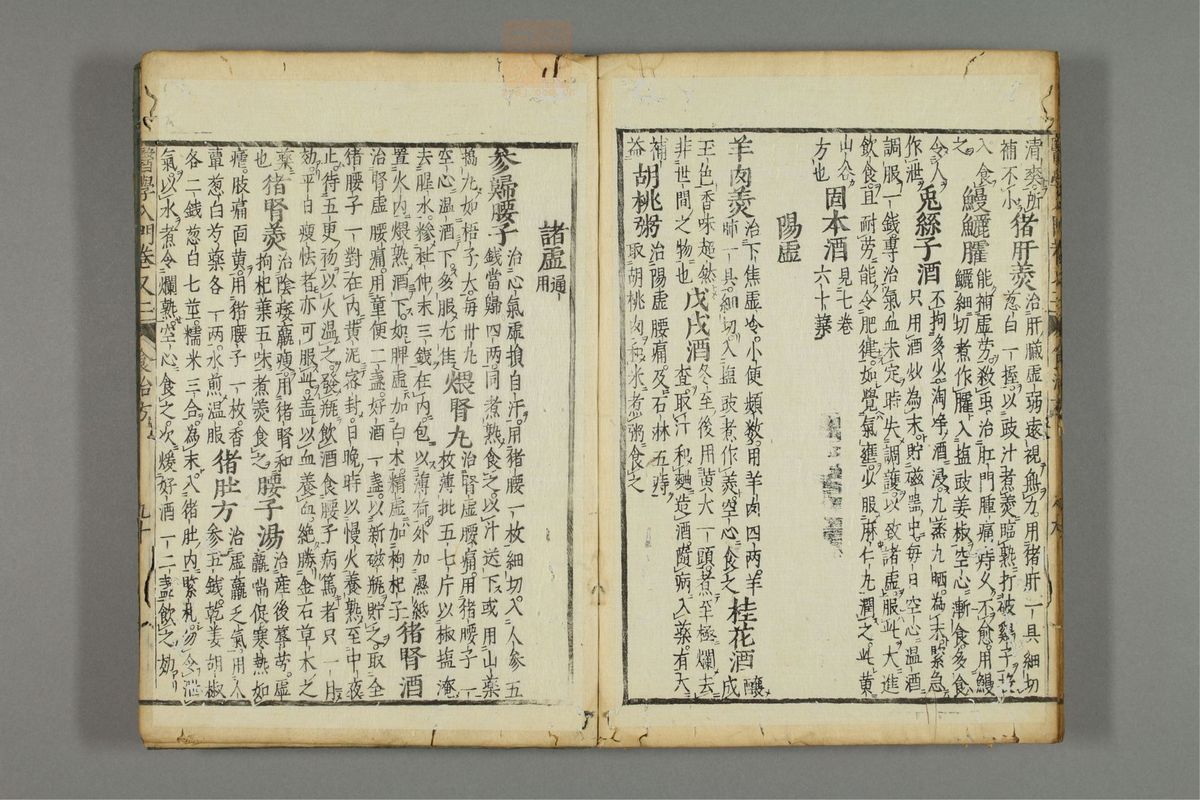 清麥所猪肝羹治肝臟虚弱遠視無力用猪肝一具細切
補不小葱白一握以豉汁煮羹臨熟打破雞子
入食鰻鱺臛能補虚劳殺虫治肛門腫痛痔久不愈用鰻
之鱺細切煮作臛入塩豉姜椒空心漸食多食
令人兎絲子酒不拘多少淘净酒浸九蒸九晒為末緊急
作泄只用酒炒為末貯磁器中每日空心温酒
調服一錢專治氣血未定時失調護以致諸虚服此大進
飲食且耐劳能令肥健如覺氣壅少服麻仁丸潤之此黄
山谷固本酒見七卷
方也六十葉
陽虚
羊肉羹治下焦虚冷小便頻数用羊肉四两羊桂花酒釀
肺一具細切入塩豉煮作羹空心食之成
玉色香味超然戊戌酒冬至後用黄犬一頭煮至極爛去
非世間之物也查取汁和麵造酒隨病入藥有大
補胡桃粥治陽虚腰痛及石淋五痔
益取胡桃肉和米煮粥食之
諸虚通用
參歸腰子治心氣虚損自汗用猪腰一枚細切入人參五
錢當歸四两同煮熟食之以汁送下或用山藥
搗丸如梧子大每卅丸煨腎丸治腎虚腰痛用猪腰子一
空心温酒下多服尤佳枚薄批五七片以椒塩淹
去腥水糝杜仲末三錢在内包以薄荷外加濕紙
置火内煨熟酒下如脾虚加白术精虚加枸杞子猪腎酒
治腎虚腰痛用童便二盞好酒一盞以新磁瓶貯之取全
猪腰子一對在内黄泥宻封日晚時以慢火養熟至中夜
止待五更初以火温之發瓶飲酒食腰子病篤者只一月
効平日瘦怯者亦可服此盖以血養血絶勝金石草木之
藥猪腎羹治陰痿羸瘦用猪腎和腰子湯治産後蓐劳虚
也枸杞葉五味煮羹食之羸喘促寒熱如
瘧肢痛面黄用猪腰子一枚香猪肚方治虚羸乏氣用人
豉葱白芍藥各一两水煎温服參五錢乾姜胡椒
各二錢葱白七莖糯米三合為末入猪肚内緊札勿令泄
氣以水煮令爛熟空心食之次煖好酒一二盞飲之効
醫學入門卷又二 食治方 九十